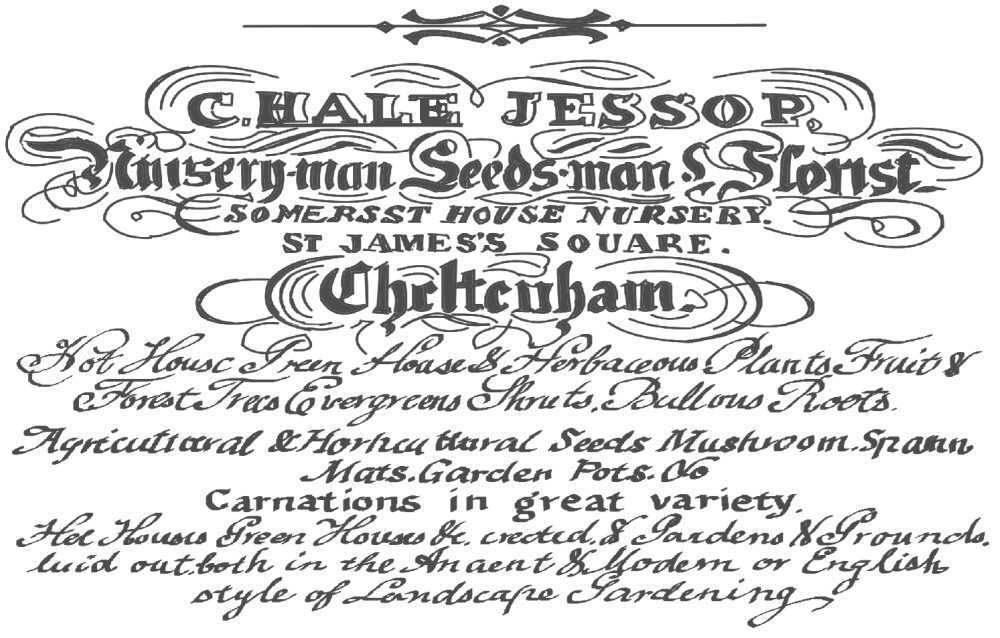 C. HALE JESSOP.
Nursery-man Seeds-man & Florist.
SOMERSST HOUSE NURSERY.
ST JAMES'S SQUARE.
Cheltenham.
Hot House Green House & Herbaceous Plants Fruit &
Forest Trees Evergreens Shruts, Bullous Roots.
Agricultural & Horticultural Seeds Mushroom. Spawn
Mats. Garden Pots. &c
Carnations in great variety.
Hot Houses Green Houses &c. erected, & Gardens & Grounds,
laid out, both in the Ancient & Modern or English
style of Landscape Gardening